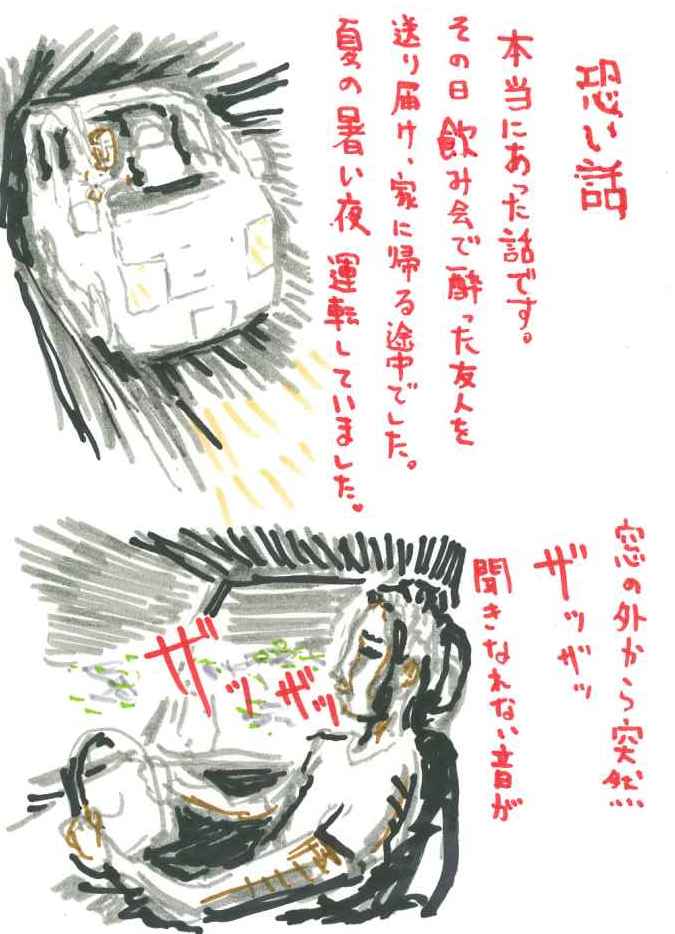 恐い話
本当にあった話です。
その日 飲み会で酔った友人を
送り届け、家に帰る途中でした。
夏の暑い夜 運転していました。
窓の外から突然…
ザッザッ
聞きなれない音が
ザッザッ